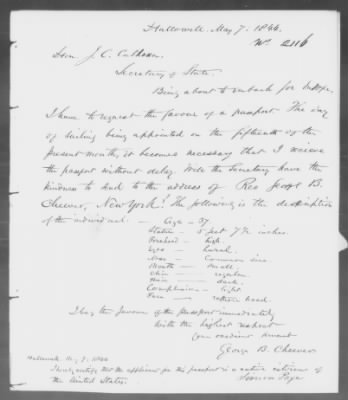 Hallowell. May 7. 1844.
No. 2116
Hon J. C. Calhoun.
Secretary of State.
Being about to embark for Europe,
I have to request the favour of a passport. The day
of sailing being appointed on the fifteenth of the
present month, it becomes necessary that I receive
the passport without delay. Will the Secretary have the
kindness to send to the address of Rev George B.
Cheever, New York? The following is the description
of the individual: — Age — 37
Stature — 5 feet 7½ inches.
Forehead — high.
Eyes — hazel.
Nose — Common size.
Mouth — small.
Chin — regular.
Hair — dark.
Complexion — light
Face — rather broad.
I beg the favour of the passport immediately
With the highest respect
your obedient servant
George B. Cheever
Hallowell. May 7. 1844
I hereby certify that the applicant for this passport is a native citizen of
the United States.
Page